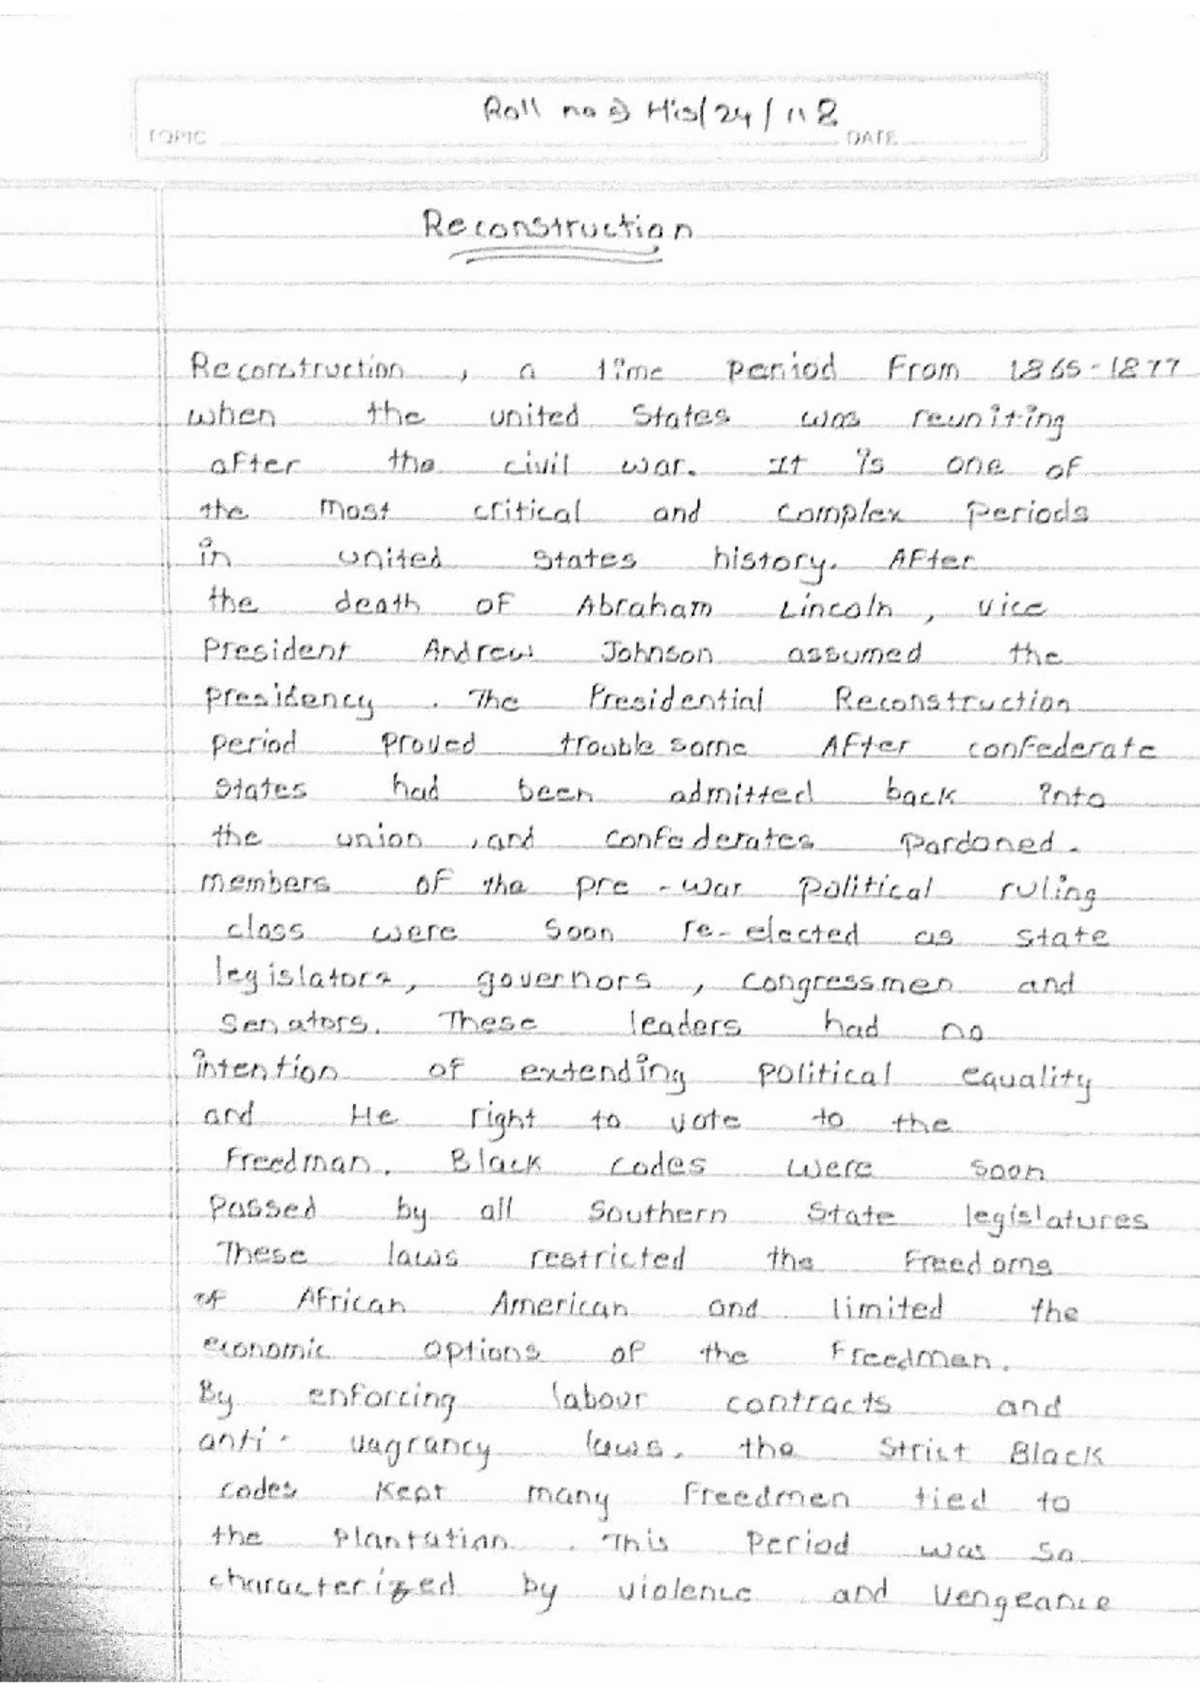 Roll no ⇒ His/24/118
TOPIC DATE
Reconstruction
Reconstruction , a time period From 1865-1877
when the united States was reuniting
after the civil war. It is one of
the most critical and complex periods
in united States history. After
the death of Abraham Lincoln , vice
President Andrew Johnson assumed the
presidency . The Presidential Reconstruction
period proved troublesome After confederate
States had been admitted back into
the union , and confederates pardoned.
members of the pre-war political ruling
class were soon re-elected as state
legislators, governors , congressmen and
Senators. These leaders had no
intention of extending political equality
and He right to vote to the
Freedman. Black codes were soon
passed by all Southern State legislatures
These laws restricted the Freedoms
of African American and limited the
economic options of the Freedman.
By enforcing labour contracts and
anti- vagrancy laws. the Strict Black
codes Kept many Freedmen tied to
the Plantation . This Period was so
characterized by violence and vengeance